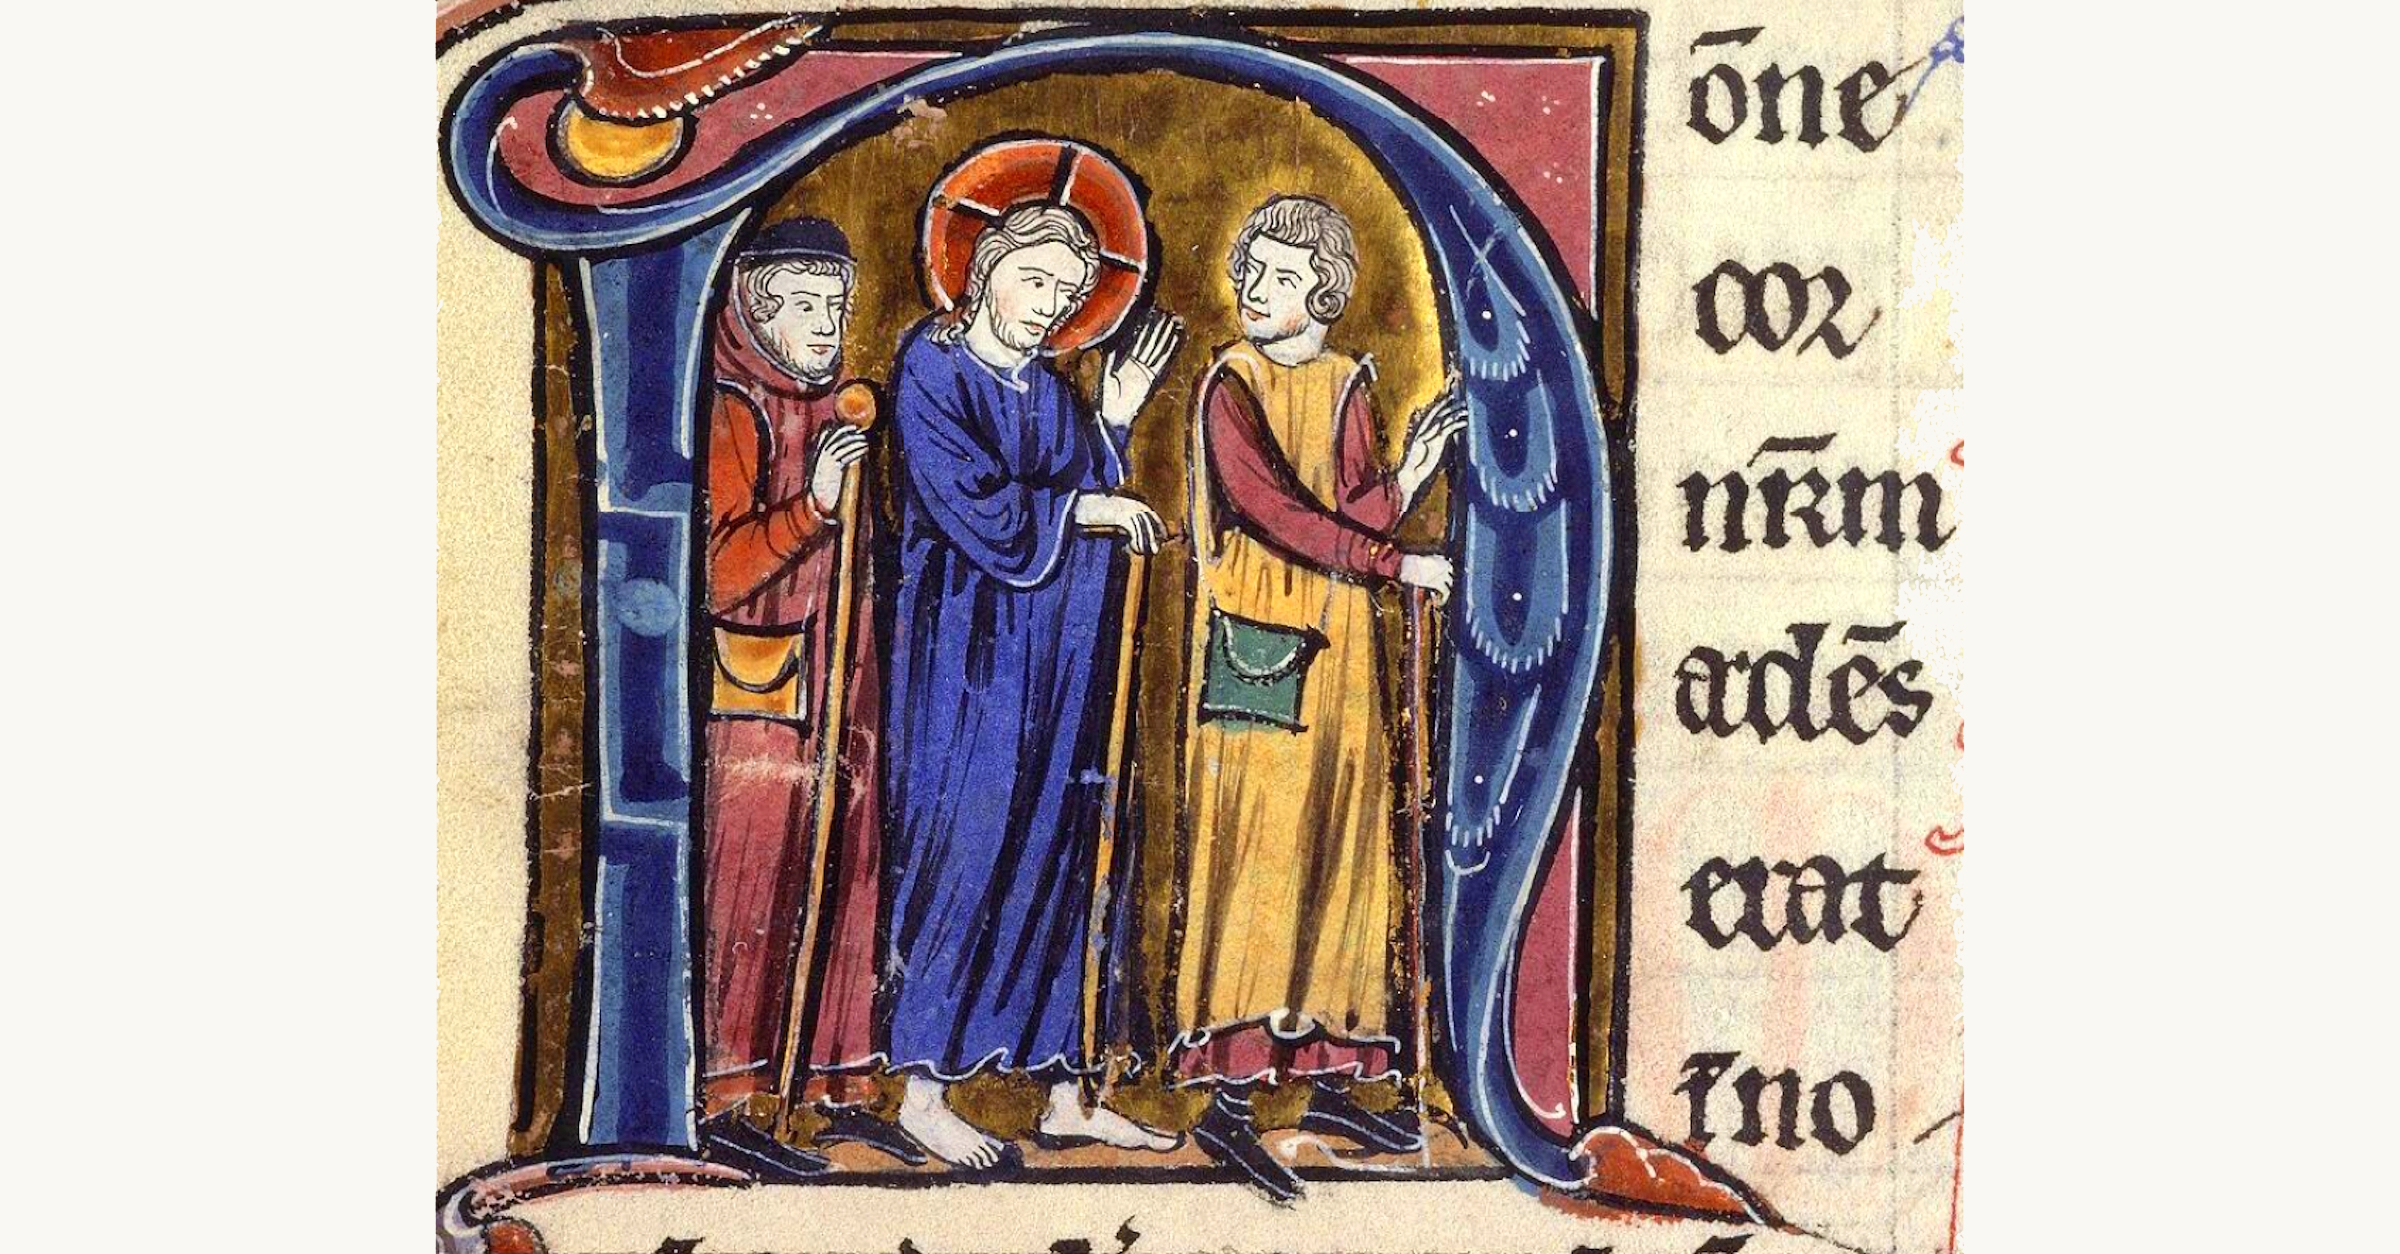 ōne
cor
nr̄m
adēs
erat
t̄no